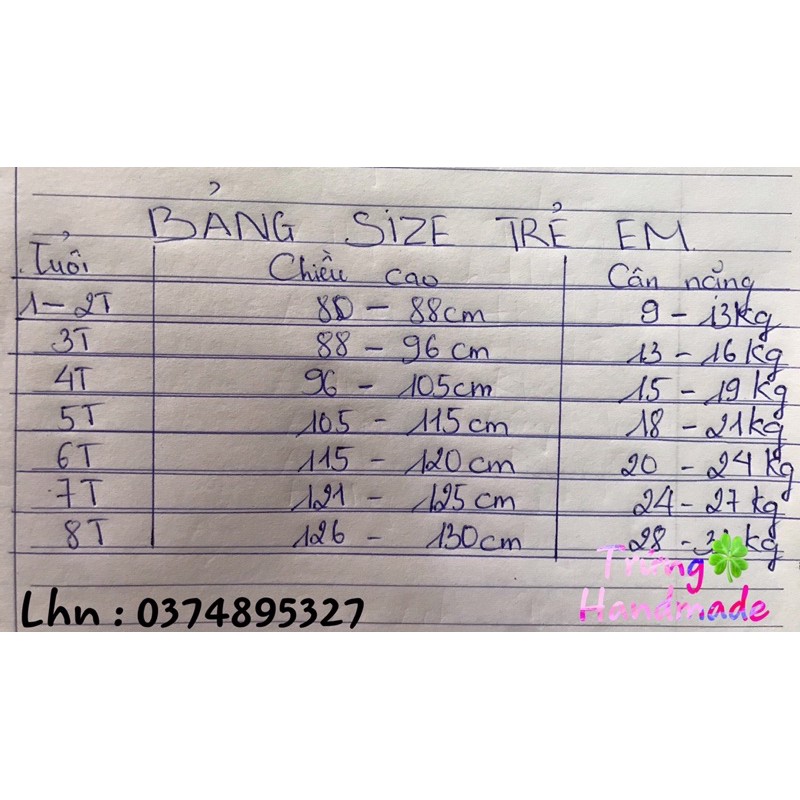 BẢNG SIZE TRẺ EM
Tuổi Chiều cao Cân nặng
1-2T 80 - 88cm 9 - 13kg
3T 88 - 96 cm 13 - 16 kg
4T 96 - 105cm 15 - 19 kg
5T 105 - 115cm 18 - 21kg
6T 115 - 120cm 20 - 24 kg
7T 121 - 125cm 24 - 27 kg
8T 126 - 130cm 28 - kg
Lhn : 0374895327
Handmade